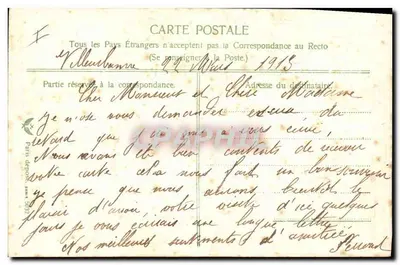 I
CARTE POSTALE
Tous les Pays Étrangers n'acceptent pas la Correspondance au Recto
(Se renseigner à la Poste.)
Villeurbanne 22 Mars 1913
Partie réservée à la correspondance. Adresse du destinataire.
Cher Monsieur et Chère Madame
je n'ose vous demander du
retard que j'ai mis à vous
Nous avons été bien contents de recevoir
votre carte cela nous fait un bon souvenir
je pense que nous aurons bientôt le
plaisir d'avoir votre visite d'ici quelques
jours je vous écrirais une longue lettre
Nos meilleurs sentiments d'amitiés